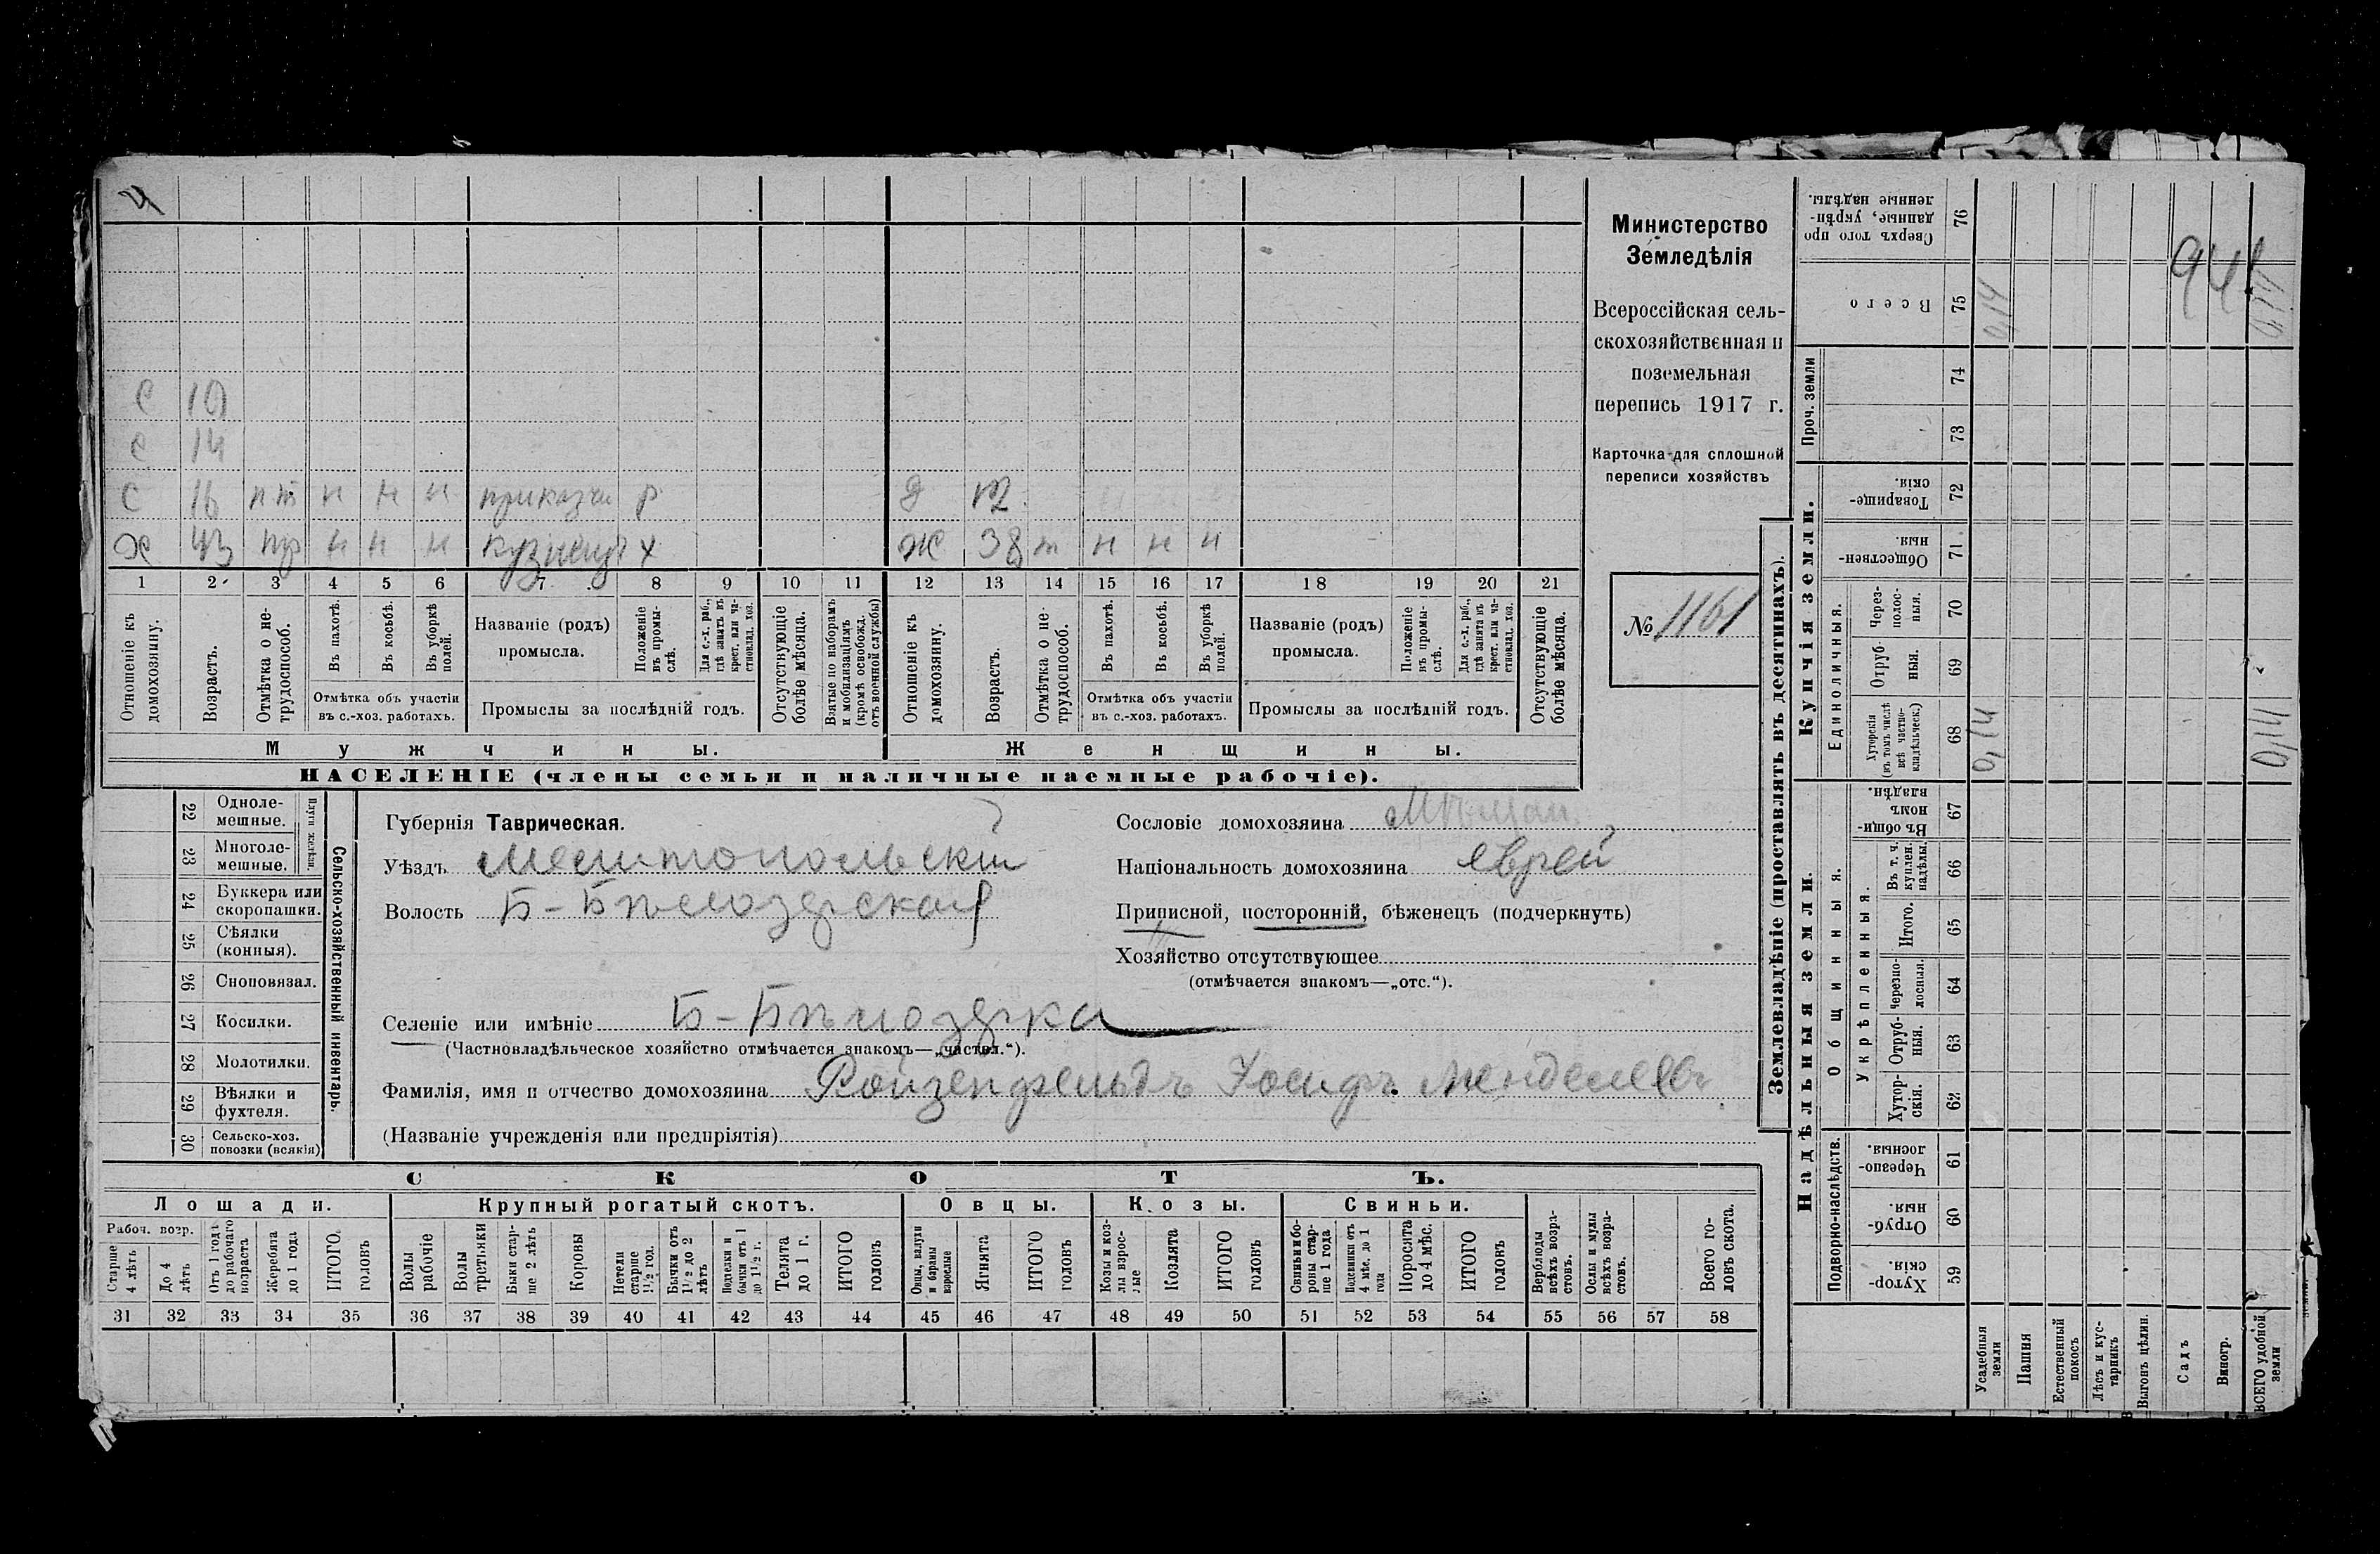 4
С 10
С 14
С 16 пт н н н приказчи р Д 12
Х 43 пр н н н кузнецъ х Ж 38 т н н н
1 2 3 4 5 6 7 8 9 10 11 12 13 14 15 16 17 18 19 20 21
Отношеніе къ домохозяину.
Возрастъ.
Отмѣтка о нетрудоспособ.
Въ пахотѣ.
Въ косьбѣ.
Въ уборкѣ полей.
Отмѣтка объ участіи въ с.-хоз. работахъ.
Названіе (родъ) промысла.
Положеніе въ промыслѣ.
Для с.-х. раб., гдѣ занятъ въ крест. или частновлад. хоз.
Промыслы за послѣдній годъ.
Отсутствующіе болѣе мѣсяца.
Взятые по наборамъ и мобилизаціямъ (кромѣ освобожд. отъ военной службы)
Отношеніе къ домохозяину.
Возрастъ.
Отмѣтка о нетрудоспособ.
Въ пахотѣ.
Въ косьбѣ.
Въ уборкѣ полей.
Отмѣтка объ участіи въ с.-хоз. работахъ.
Названіе (родъ) промысла.
Положеніе въ промыслѣ.
Для с.-х. раб., гдѣ занята въ крест. или частновлад. хоз.
Промыслы за послѣдній годъ.
Отсутствующіе болѣе мѣсяца.
Мужчины. Женщины.
НАСЕЛЕНІЕ (члены семьи и наличные наемные рабочіе).
Министерство
Земледѣлія
Всероссійская сель-
скохозяйственная и
поземельная
перепись 1917 г.
Карточка для сплошной
переписи хозяйствъ
№ 1161
22 Одноле-
мешные.
23 Многоле-
мешные.
Плуги желѣзн.
24 Буккера или
скоропашки.
25 Сѣялки
(конныя).
26 Сноповязал.
27 Косилки.
28 Молотилки.
29 Вѣялки и
фухтеля.
30 Сельско-хоз.
повозки (всякія)
Сельско-хозяйственный инвентарь.
Губернія Таврическая.
Уѣздъ Мелитопольскій
Волость Б-Бѣлозерская
Селеніе или имѣніе Б-Бѣлозерка
(Частновладѣльческое хозяйство отмѣчается знакомъ—„частвл.“).
Фамилія, имя и отчество домохозяина Ройзенфельдъ Іосифъ Менделевъ
(Названіе учрежденія или предпріятія)
Сословіе домохозяина Мѣщан.
Національность домохозяина еврей
Приписной, посторонній, бѣженецъ (подчеркнуть)
Хозяйство отсутствующее
(отмѣчается знакомъ—„отс.“).
СКОТЪ.
Лошади. Крупный рогатый скотъ. Овцы. Козы. Свиньи.
Рабоч. возр.
Старше 4 лѣтъ
До 4 лѣтъ
Отъ 1 года до рабочаго возраста
Жеребята до 1 года
ИТОГО головъ
Волы рабочіе
Волы третьяки
Быки старше 2 лѣтъ
Коровы
Нетели старше 1½ год.
Бычки отъ 1½ до 2 лѣтъ
Подтелки и бычки отъ 1 до 1½ г.
Телята до 1 г.
ИТОГО головъ
Овцы, валухи и бараны взрослые
Ягнята
ИТОГО головъ
Козы и козлы взрослые
Козлята
ИТОГО головъ
Свиньи и боровы старше 1 года
Подсвинки отъ 4 мѣс. до 1 года
Поросята до 4 мѣс.
ИТОГО головъ
Верблюды всѣхъ возрастовъ.
Ослы и мулы всѣхъ возрастовъ.
Всего головъ скота.
31 32 33 34 35 36 37 38 39 40 41 42 43 44 45 46 47 48 49 50 51 52 53 54 55 56 57 58
Землевладѣніе (проставлять въ десятинахъ).
Надѣльныя земли. Купчія земли. Проч. земли
Подворно-наслѣдств.
Общинныя.
Укрѣпленныя.
Единоличныя.
Сверхъ того проданные, укрѣпленные надѣлы. 76
Всего 75 0,14 0,14
94
74
73
Товарищескія. 72
Общественныя. 71
Черезполосныя. 70
Отрубныя. 69
Хуторскія (въ томъ числѣ всѣ частновладѣльческ.) 68 0,14 0,14
Въ общинномъ владѣн. 67
Въ т. ч. куплен. надѣлы. 66
Итого. 65
Черезполосныя. 64
Отрубныя. 63
Хуторскія. 62
Черезполосныя. 61
Отрубныя. 60
Хуторскія. 59
Усадебныя земли
Пашня
Естественный покосъ
Лѣсъ и кустарникъ
Выгонъ цѣлин.
Садъ
Виногр.
ВСЕГО удобной земли